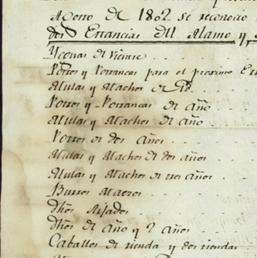 Agosto de 1802 se reconocio
dos Estancias del Alamo y
Yeguas de Vientre
Potros y Potrancas para el proximo
Mulas y Machos de
Potros y Potrancas de año
Mulas y Machos de año
Potros de dos años
Mulas y Machos de dos años
Mulas y Machos de tres años
Burros Maeros
Dhos Aijados
Dhos de año y 2 años
Caballos de rienda y dos riendas